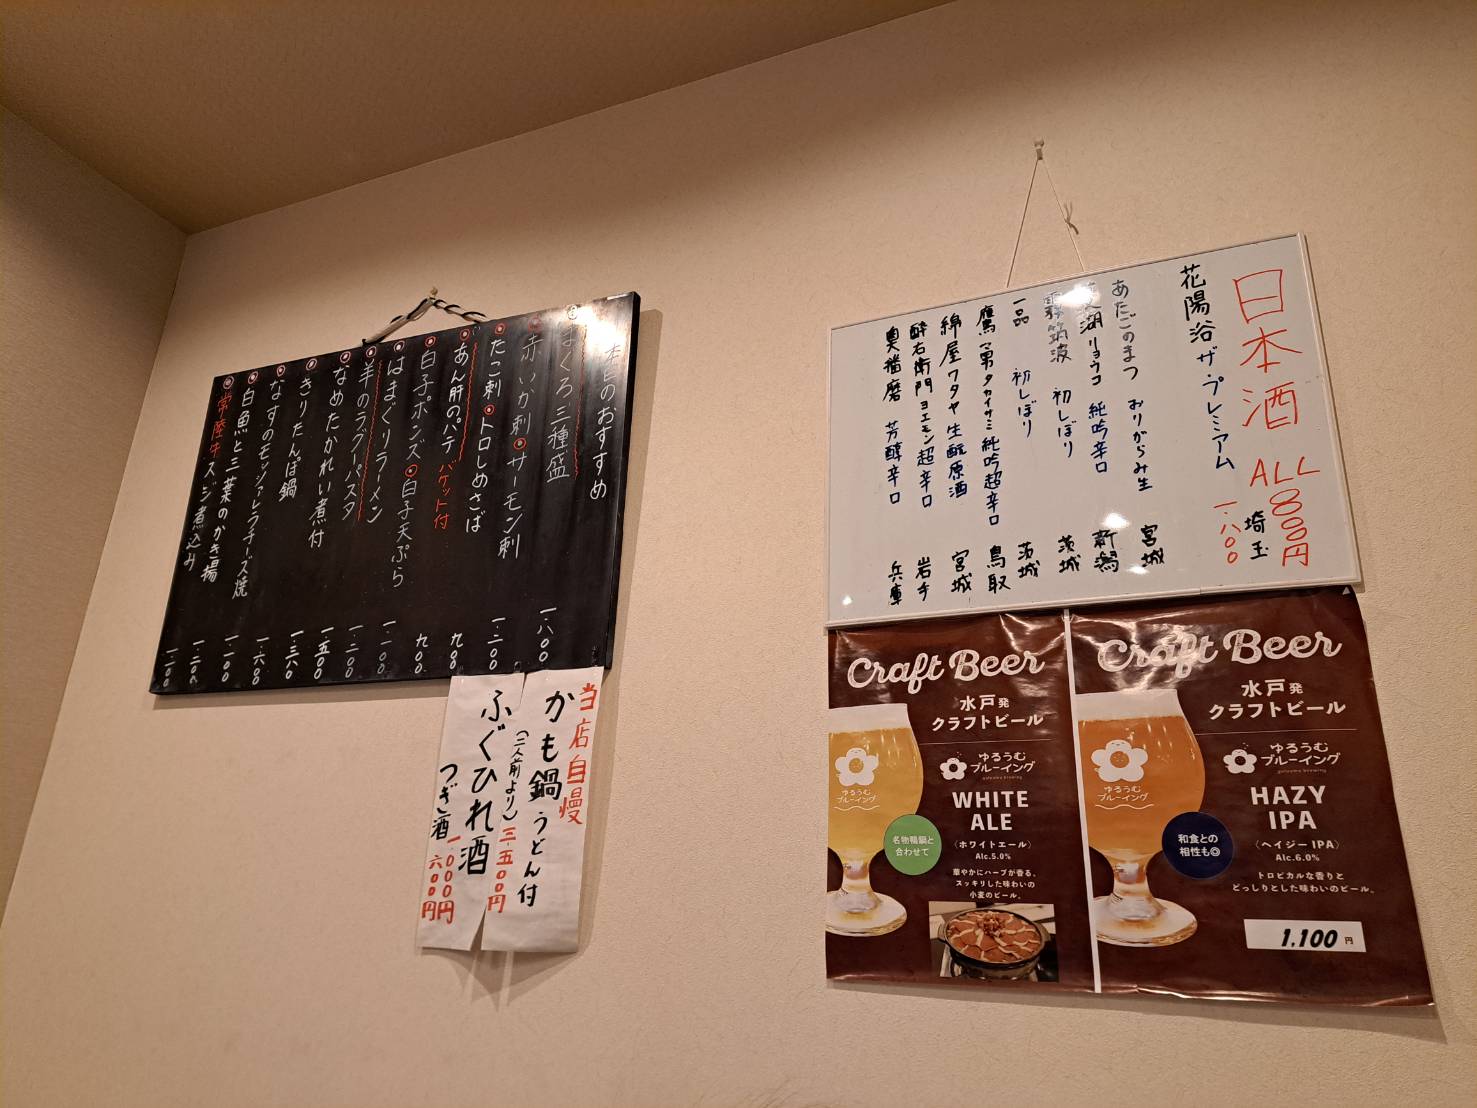 本日のおすすめ
まぐろ三種盛 一.八〇〇
赤いか刺 サーモン刺
たこ刺 トロしめさば 一.二〇〇
あん肝のパテ バケット付 九〇〇
白子ポンズ 白子天ぷら 九〇〇
はまぐりラーメン 一.一〇〇
羊のラグーパスタ 一.二〇〇
なめたかれい煮付 一.五〇〇
きりたんぽ鍋 一.三八〇
なすのモッツァレラチーズ焼 一.六〇〇
白魚と三葉のかき揚 一.一〇〇
常陸牛スジ煮込み 一.二〇〇
当店自慢
かも鍋 うどん付
(二人前より) 三.五〇〇円
ふぐひれ酒 一.〇〇〇円
つぎ酒 六〇〇円
日本酒 ALL 800円
花陽浴 ザ プレミアム 埼玉 一.八〇〇
あたごのまつ おりがらみ生 宮城
湖 リョウコ 純吟辛口 新潟
霧筑波 初しぼり 茨城
一品 初しぼり 茨城
鷹勇 タカイサミ 純吟超辛口 鳥取
綿屋 ワタヤ 生酛原酒 宮城
酔右衛門 ヨエモン 超辛口 岩手
奥播磨 芳醇辛口 兵庫
Craft Beer
水戸発
クラフトビール
ゆるうむ
ブルーイング
WHITE
ALE
〈ホワイトエール〉
Alc.5.0%
華やかにハーブが香る、
スッキリした味わいの
小麦のビール。
名物鴨鍋と
合わせて
ゆるうむ
ブルーイング
Craft Beer
水戸発
クラフトビール
ゆるうむ
ブルーイング
HAZY
IPA
〈ヘイジーIPA〉
Alc.6.0%
トロピカルな香りと
どっしりとした味わいのビール。
和食との
相性も◎
ゆるうむ
ブルーイング
1,100 円